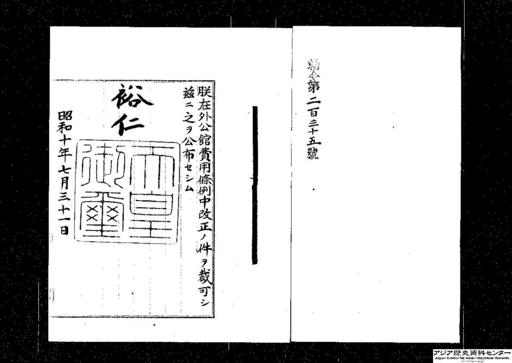 勅令第二百三十五號
朕在外公館費用條例中改正ノ件ヲ裁可シ
茲ニ之ヲ公布セシム
裕仁
天皇御璽
昭和十年七月三十一日
アジア歴史資料センター
Japan Center for Asian Historical Records